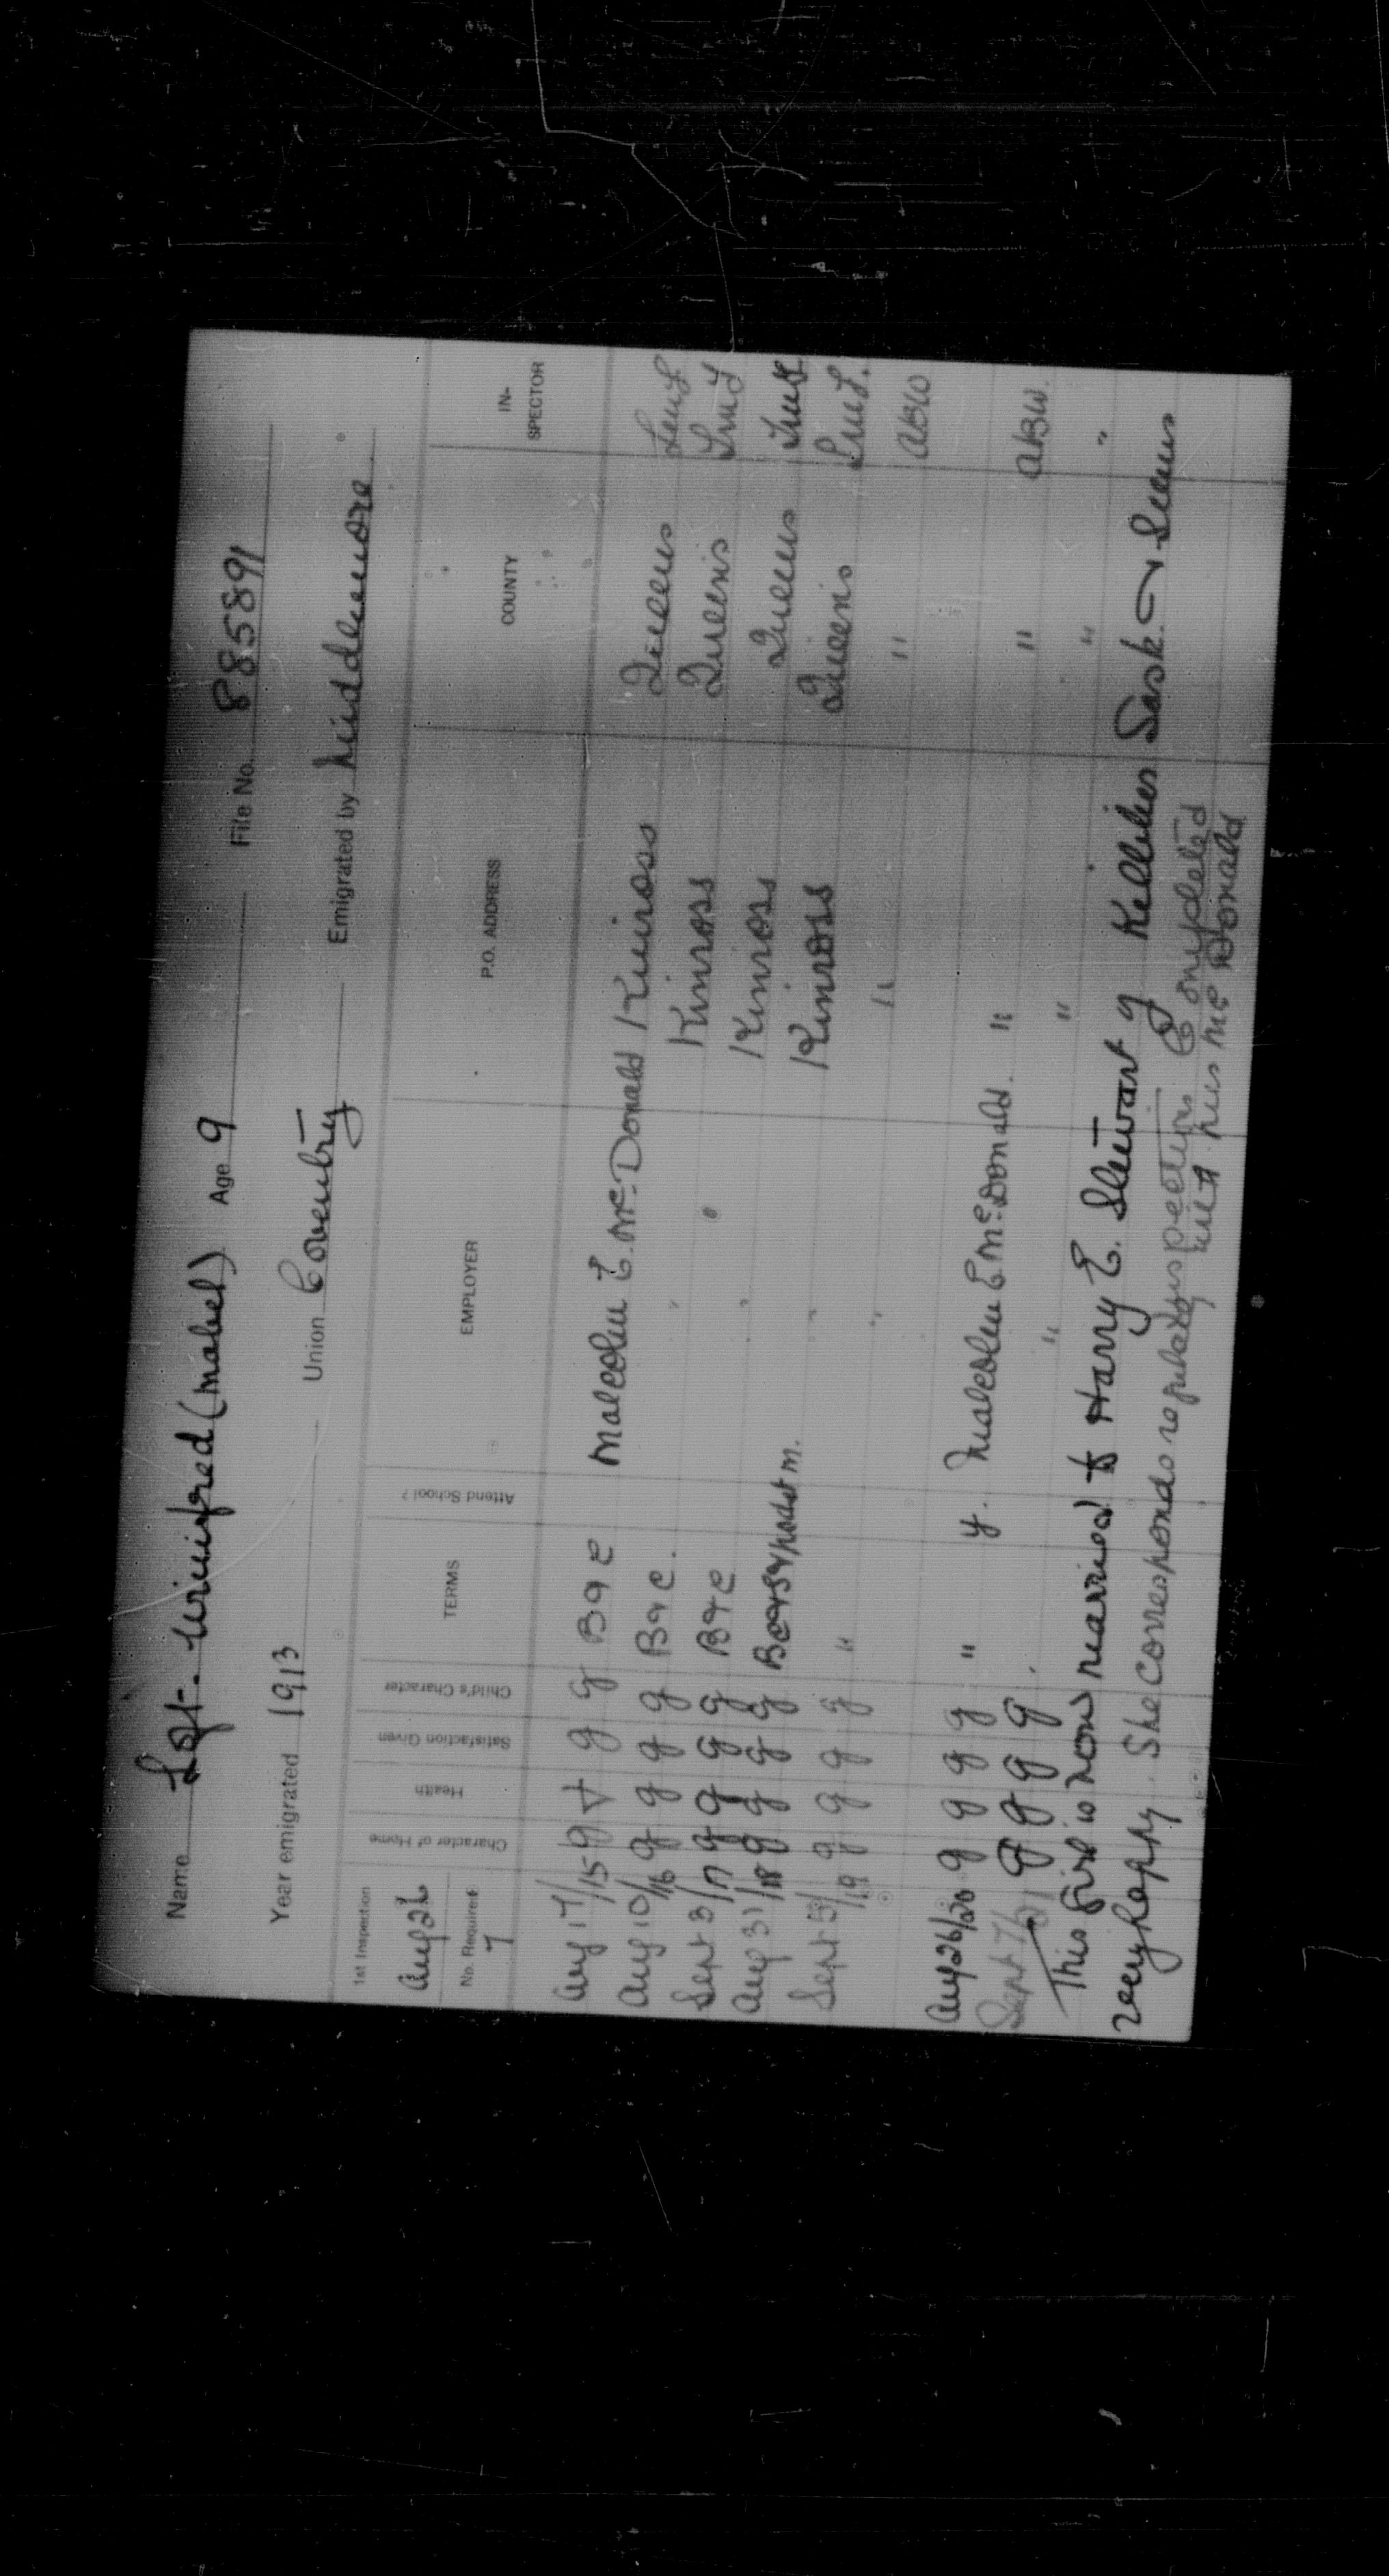 Name Loft. Winifred (Mabel) Age 9 File No. 885891
Year emigrated 1913 Union Coventry Emigrated by Middlemore
1st Inspection Character of Home Health Satisfaction Given Child's Character TERMS Attend School? EMPLOYER P.O. ADDRESS COUNTY IN-SPECTOR
Aug 26
No. Required
7
Aug 17/15 g g g B & C Malcolm E. McDonald Kinross Queens
Aug 10/16 g g g g B & C. " Kinross Queens
Sept 3/17 g g g g B & C " Kinross Queens
Aug 31/18 g g g g " Kinross Queens
Sept 5/19 g g g g " " " " ABW
Aug 26/20 g g g g " y. Malcolm E. McDonald. " " ABW.
Sept 7/21 g g g g " " " "
This girl is now married to Harry E. Stewart of Killiher Sask. & seems
very happy. She corresponds regularly with Mrs McDonald
Inspection Completed